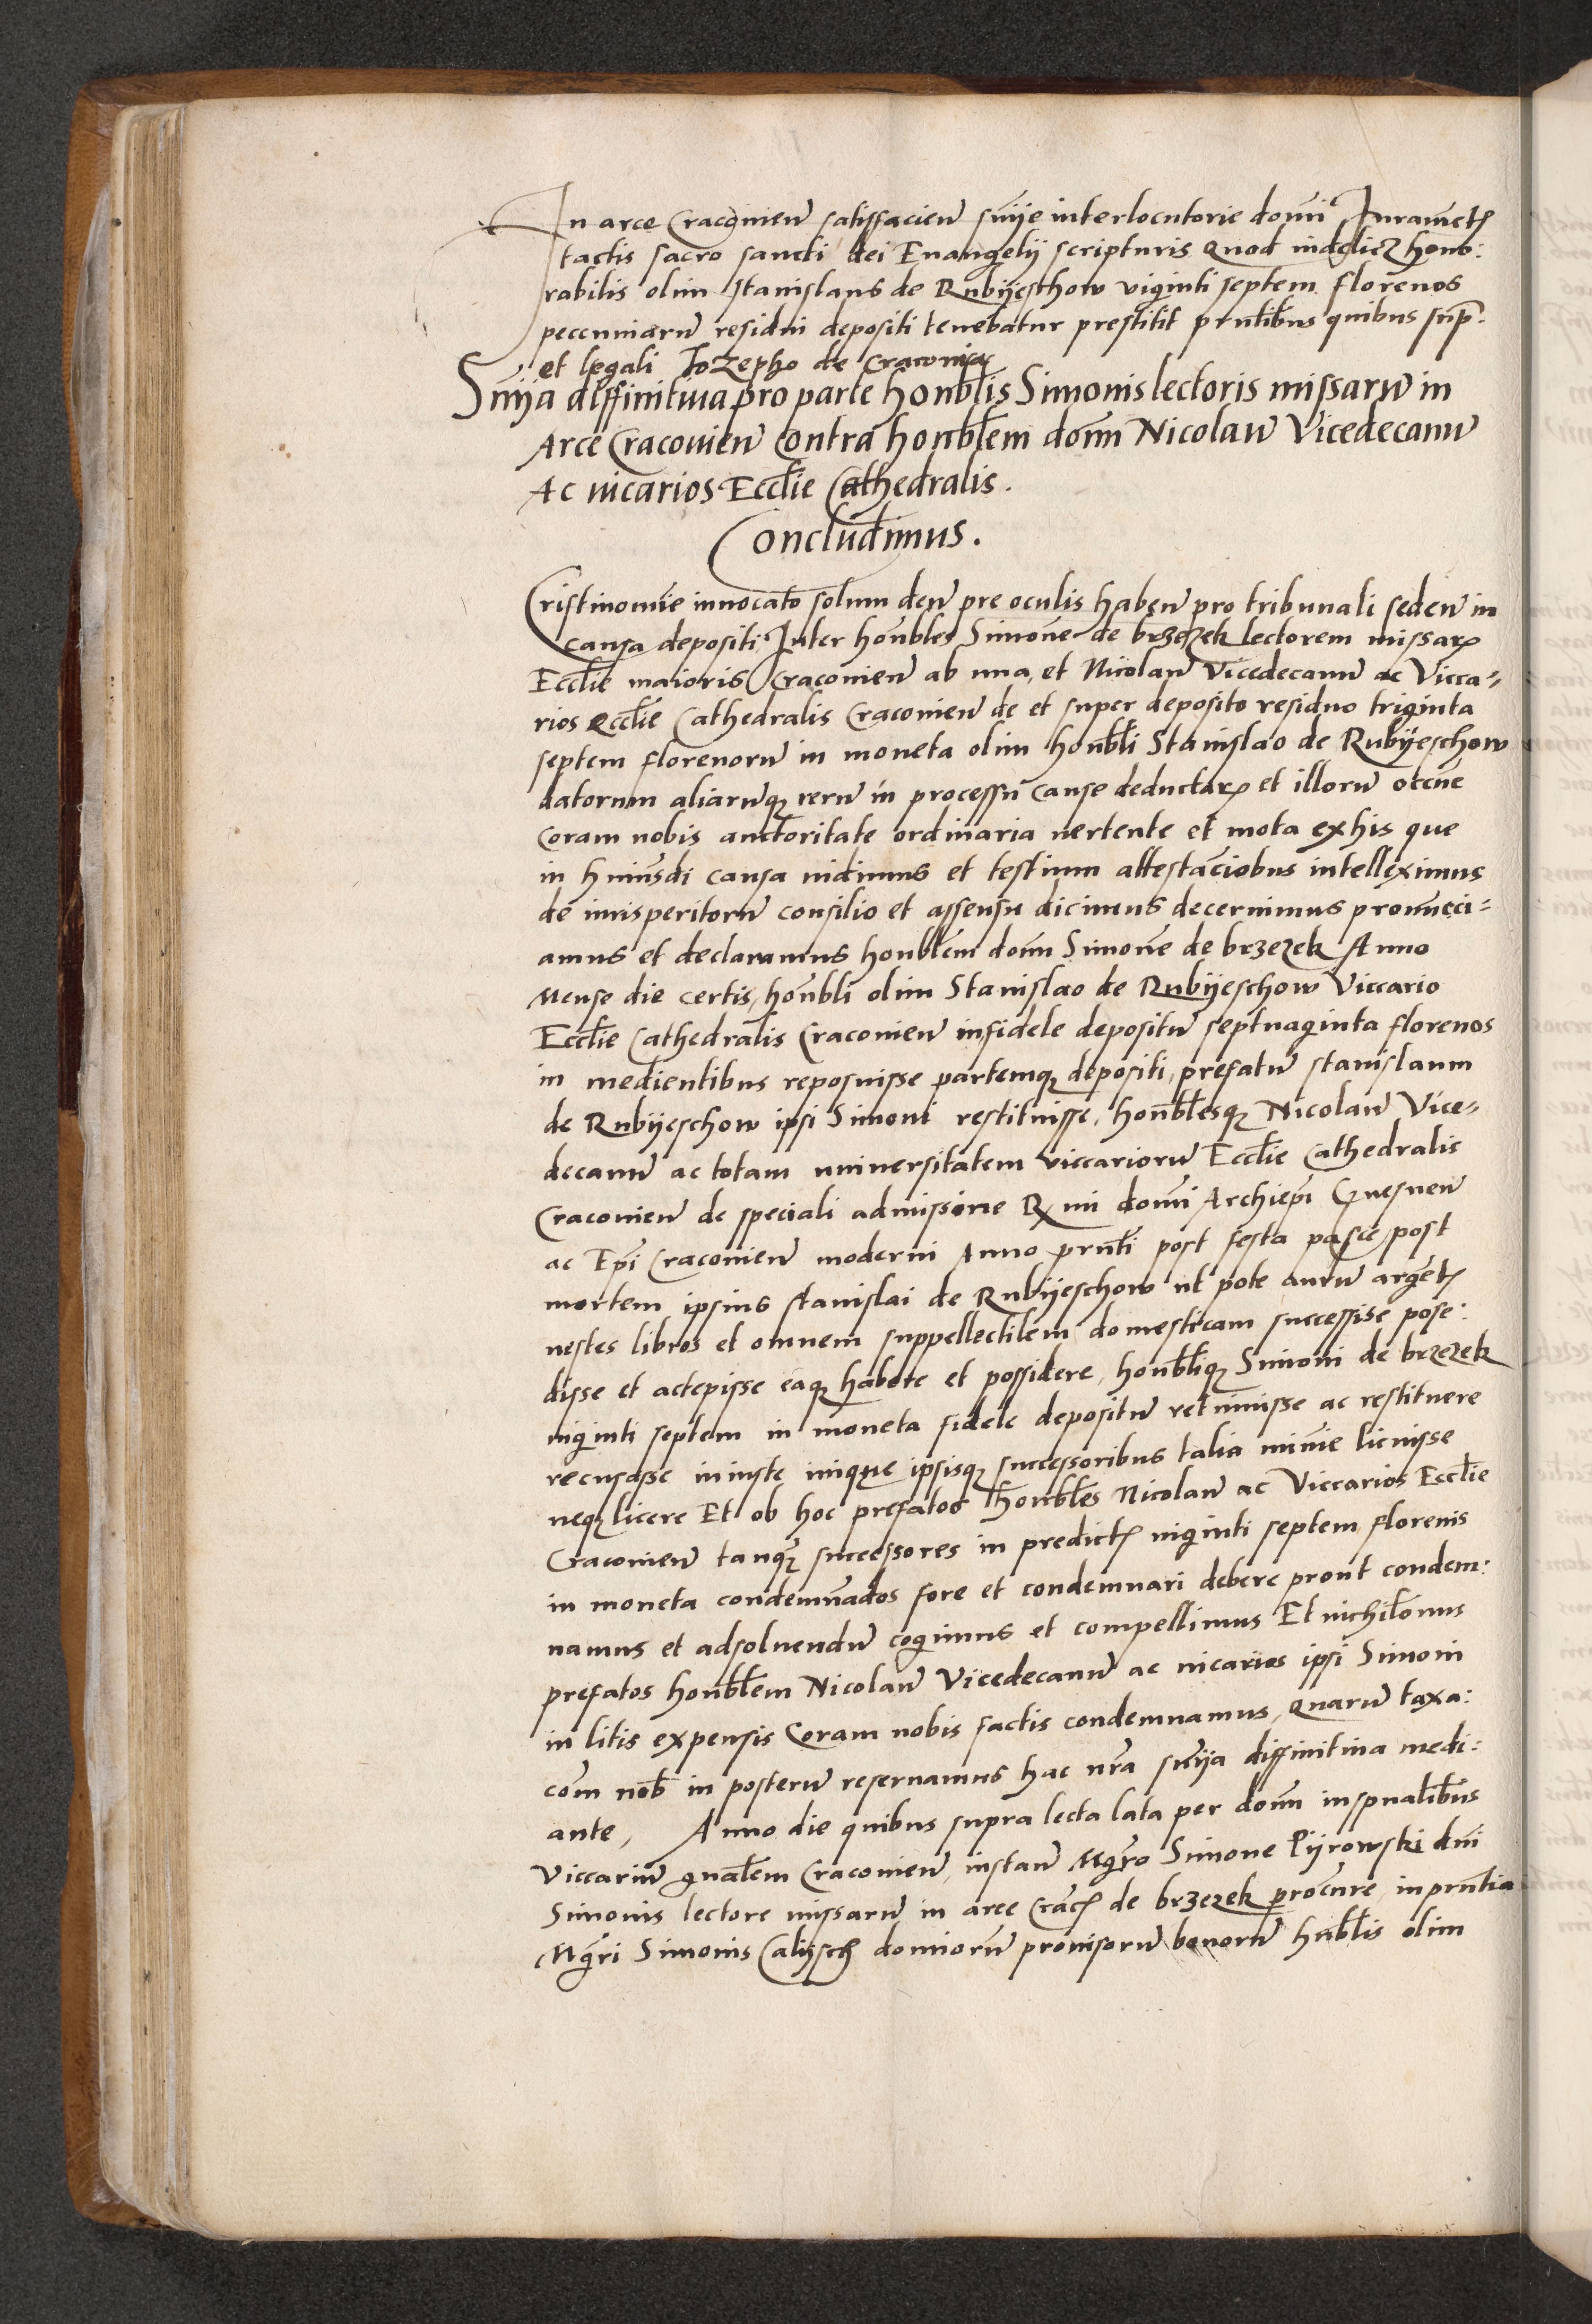 In arce Cracovien̄ satisfacien̄ sn̄ije interlocutorie domī Juramēt
tactis sacro sancti dei Euangelij scripturis Quod videlicz hono:
rabilis olim stanislaus de Rubijeschow viginti septem florenos
pecuniarū residui depositi tenebatur prestitit pn̄tibus quibus sup:
et legali Jozepho de Cracovia
Sn̄ija diffinitiua pro parte honōblis Simonis lectoris missarū in
Arce Cracouien̄ Contra honōblem domī Nicolaū Vicedecanū
Ac uicarios Ecclīe Cathedralis.
Concludimus.
Cristinomīe innocato solum deū pre oculis haben̄ pro tribunali seden̄ in
causa depositi Inter honōbles Simonē de brzezek lectorem missarꝝ
Ecclīe maioris Cracouien̄ ab una, et Nicolaū Vicedecanū ac Vicca-
rios Ecclīe Cathedralis Cracouien̄ de et super deposito residuo triginta
septem florenorū in moneta olim honōbli Stanislao de Rubijeschow
datorum aliarūqꝫ rerū in processu cause deductarꝝ et illorū occōne
coram nobis auctoritate ordinaria uertente et mota ex his que
in huiusdi causa uidimus et testium attestaciobus intelleximus
de iurisperitorū consilio et assensu dicimus decernimus pronūci-
amus et declaramus honōblem domī Simonē de brzezek Anno
Mense die certis, honōbli olim Stanislao de Rubijeschow Viccario
Ecclīe Cathedralis Cracouien̄ infidele depositū septuaginta florenos
in medientibus reposuisse partemqꝫ depositi, prefatū stanislaum
de Rubijeschow ipsi Simoni restituisse, honōblesqꝫ Nicolaū Vice-
decanū ac totam uniuersitatem viccariorū Ecclīe Cathedralis
Cracouien̄ de speciali admissione Rx mi domī Archiepī Gnesnen̄
ac Epī Cracouien̄ moderni Anno prn̄ti post festa pasce post
mortem ipsius stanislai de Rubijeschow ut pote aurū argēt
uestes libros et omnem suppellectilem domesticam successise pose:
disse et accepisse eaqꝫ habere et possidere, honōbliqꝫ Simoni de brzezek
uiginti septem in moneta fidele depositū retinuisse ac restituere
recusasse iniuste inique ipsisqꝫ successoribus talia minīe licuisse
neqꝫ licere Et ob hoc prefatos honōbles Nicolaū ac Viccarios Ecclīe
Cracouien̄ tanqꝫ successores in predict uiginti septem florenis
in moneta condemnādos fore et condemnari debere prout condem:
namus et adsoluendū cogimus et compellimus Et nichilomīus
prefatos honōblem Nicolaū Vicedecanū ac uicarios ipsi Simoni
in litis expensis Coram nobis factis condemnamus, Quarū taxa:
com̄ nob̄ in posterū reseruamus hac nr̄a sn̄ija diffinitiua medi:
ante, Anno die quibus supra lecta lata per domī inspualibus
Viccariū gn̄alem Cracouien̄, instan̄ Mgr̄o Simone Pijrowski dn̄i
Simonis lectore missarū in arce Crac de brzezek procūre in prn̄tia
Mgr̄i Simonis Calijsch domīorū prouisorū bonorū hn̄blis olim